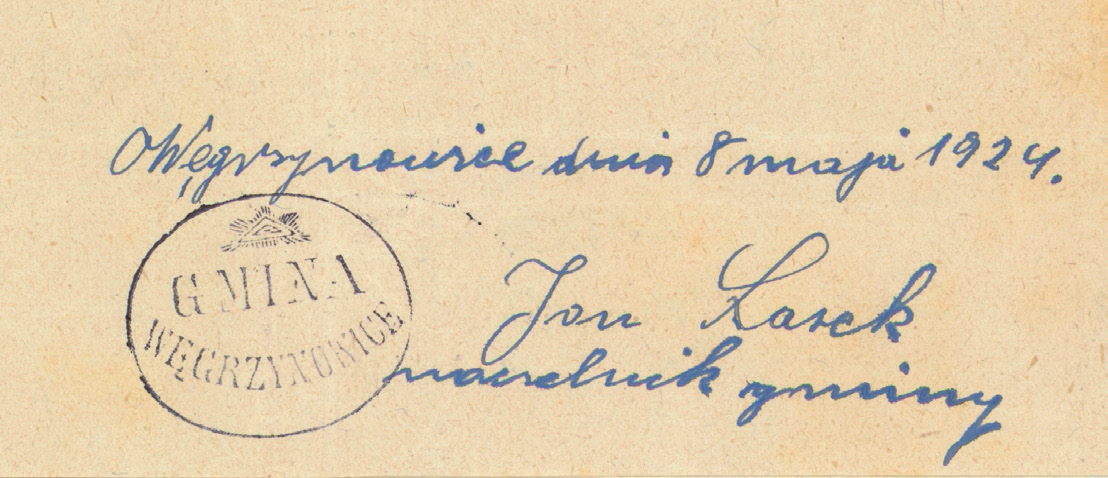 Węgrzynowice dnia 8 maja 1924.
GMINA
WĘGRZYNOWICE
Jan
naczelnik gminy